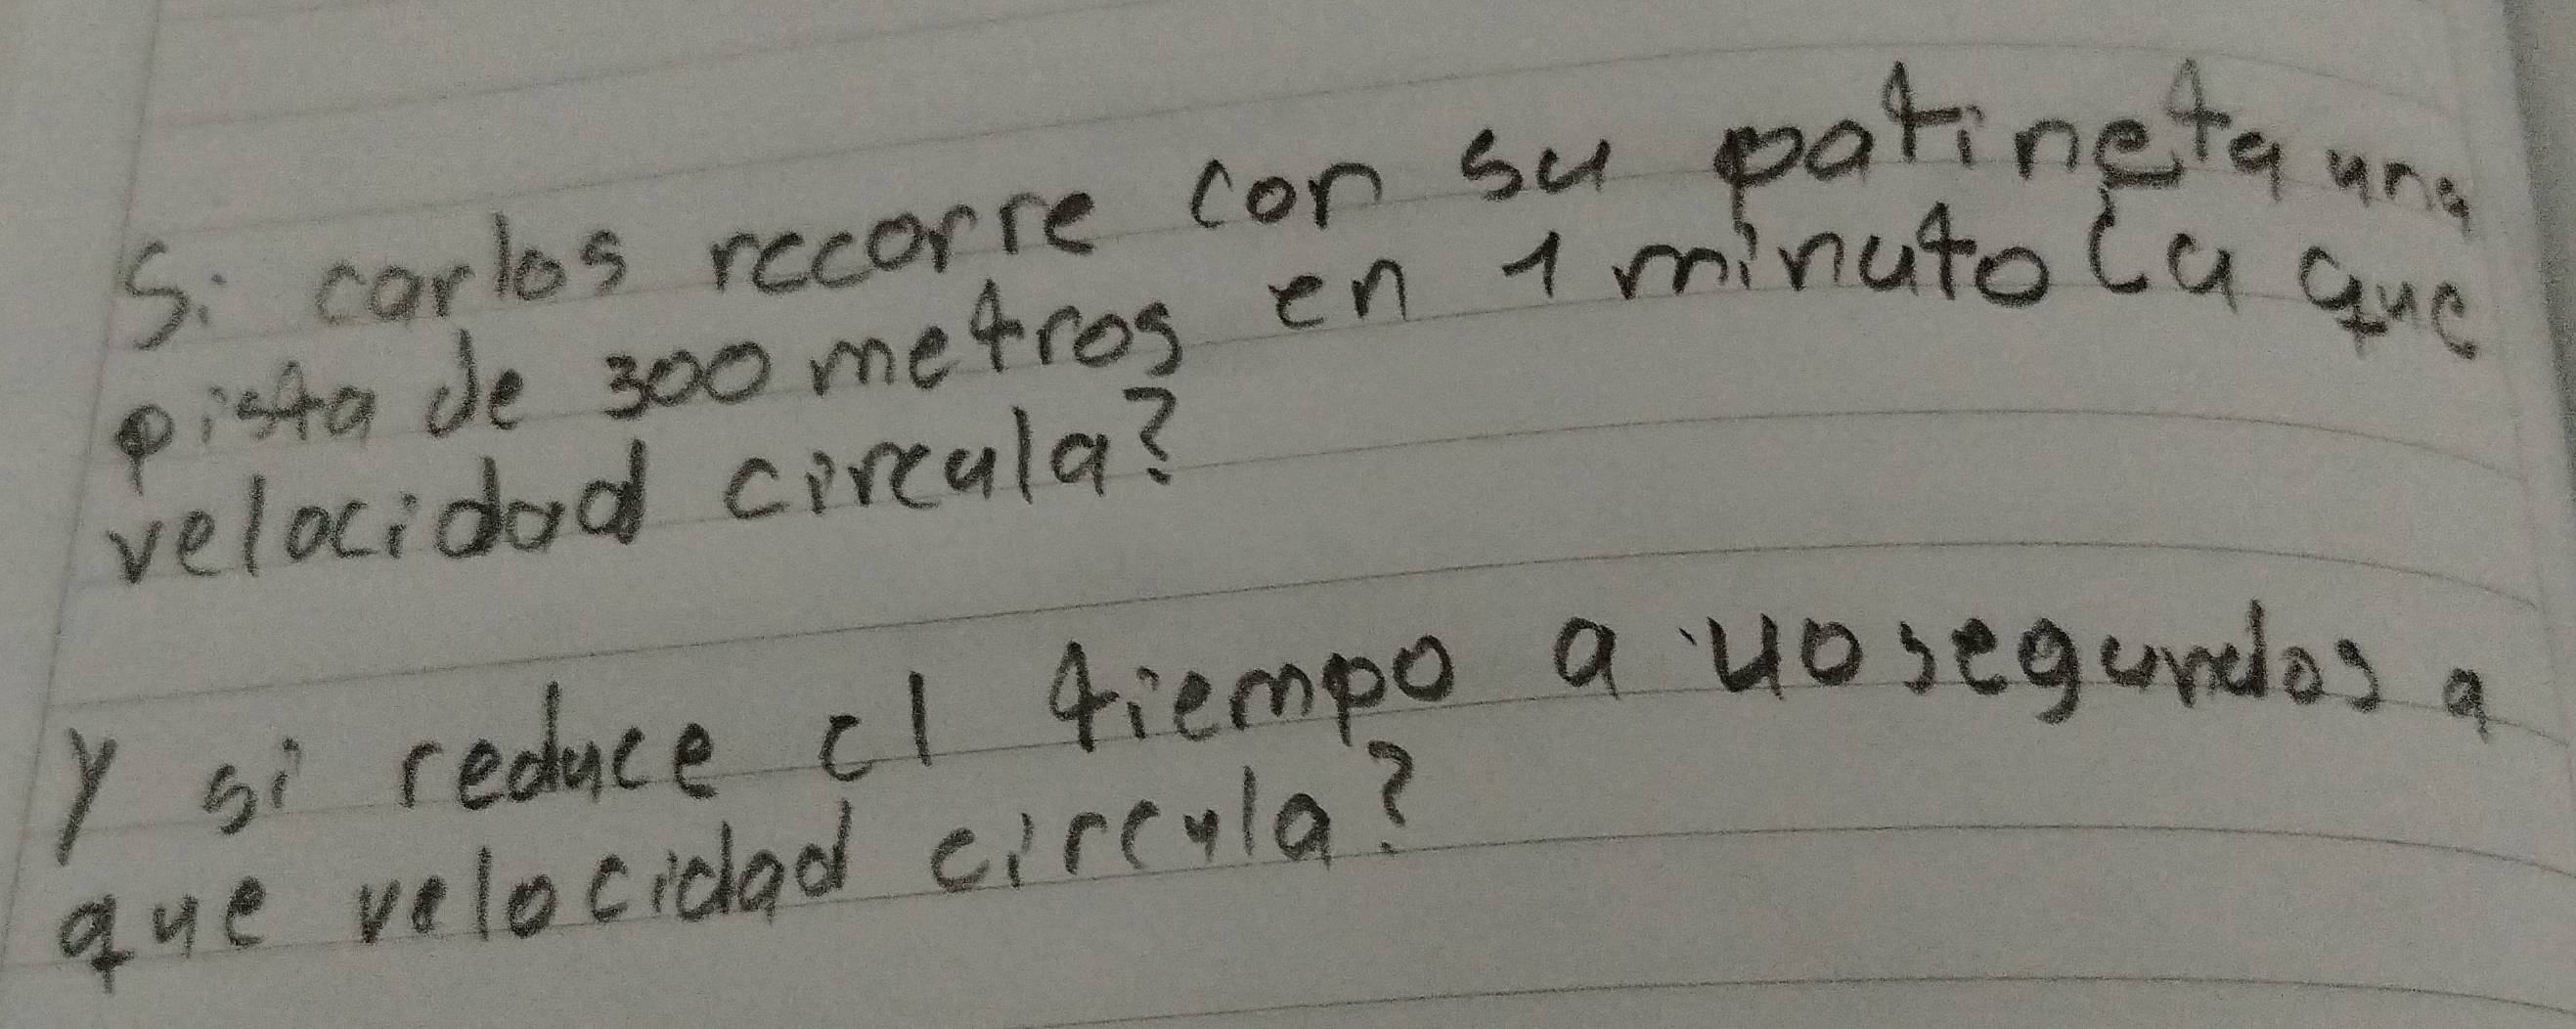 Si carlos recorre con su patineta una
pista de 300 metros en 1 minuto ¿a que
velocidad circula?
y si reduce el tiempo a 40 segundos a
que velocidad circula?